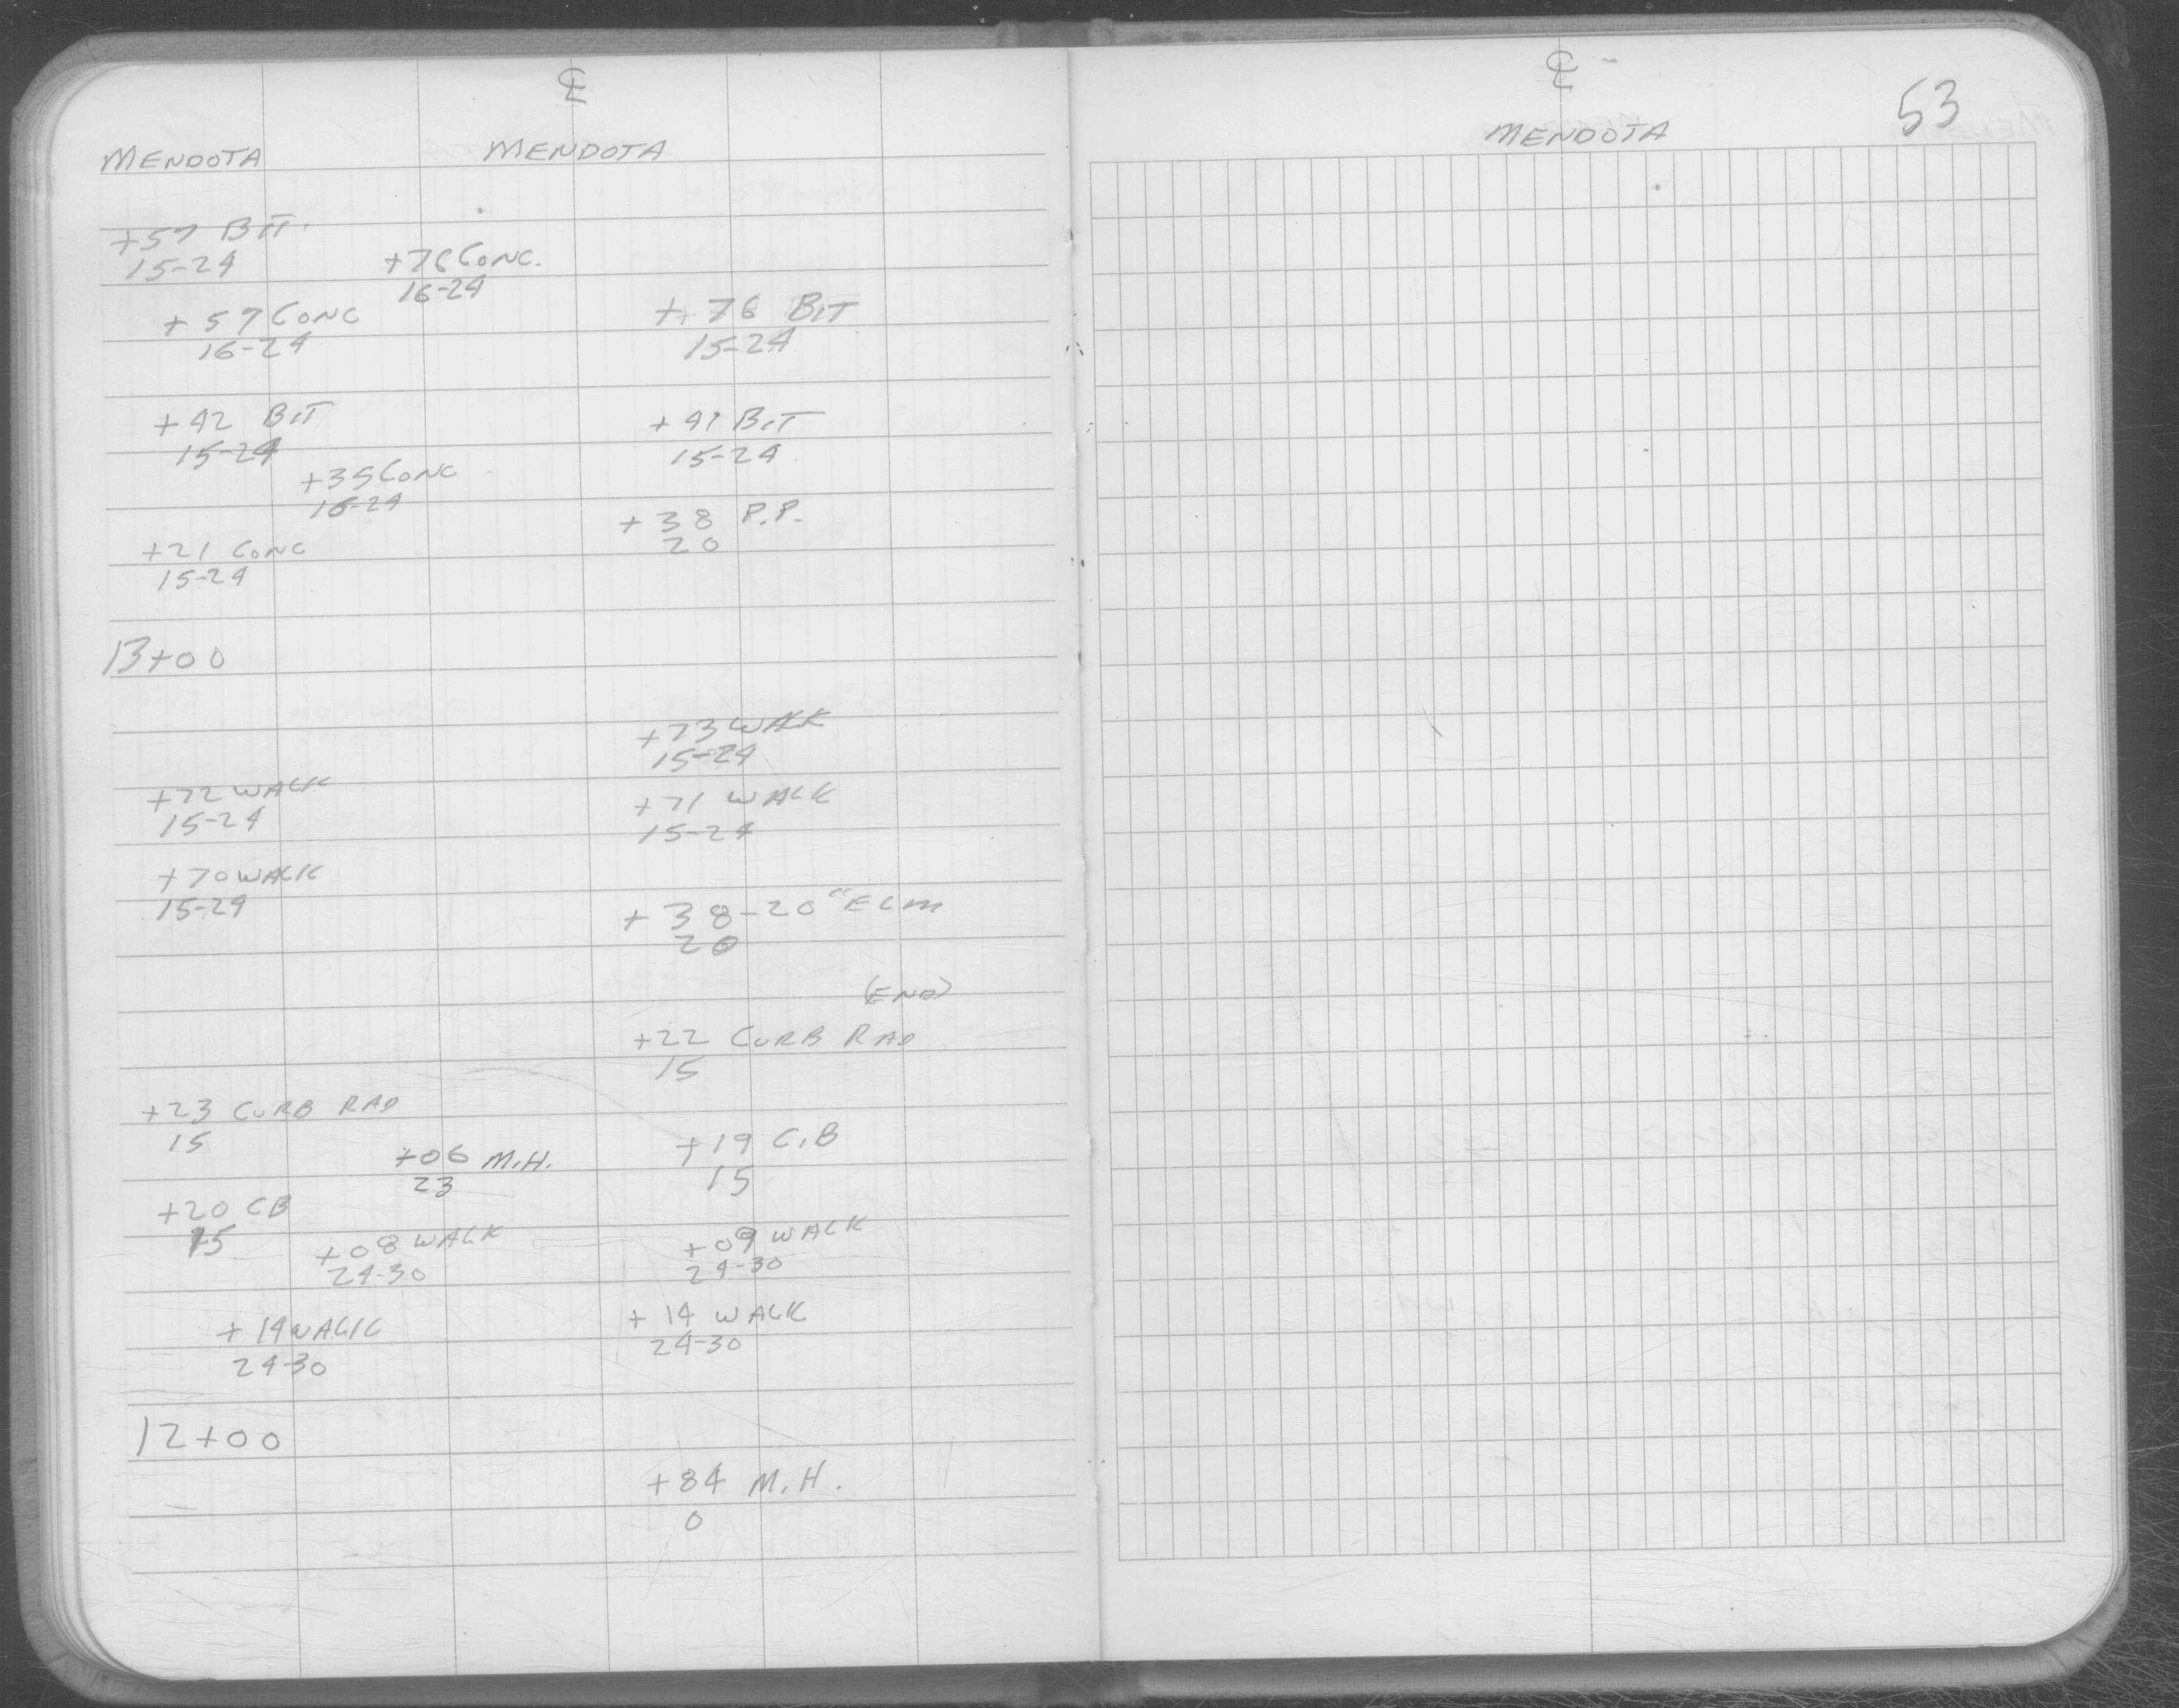 ℄
MENDOTA MENDOTA
+57 BIT.
15-24
+76 CONC.
16-24
+57 CONC
16-24
+76 BIT
15-24
+42 BIT
15-24
+41 BIT
15-24
+35 CONC
16-24
+38 P.P.
20
+21 CONC
15-24
13+00
+73 WALK
15-24
+72 WALK
15-24
+71 WALK
15-24
+70 WALK
15-24
+38-20" ELM
20
(END)
+22 CURB RAD
15
+23 CURB RAD
15
+06 M.H.
23
+19 C.B
15
+20 CB
15
+08 WALK
24-30
+09 WALK
24-30
+14 WALK
24-30
+14 WALK
24-30
12+00
+84 M.H.
0
℄
53
MENDOTA